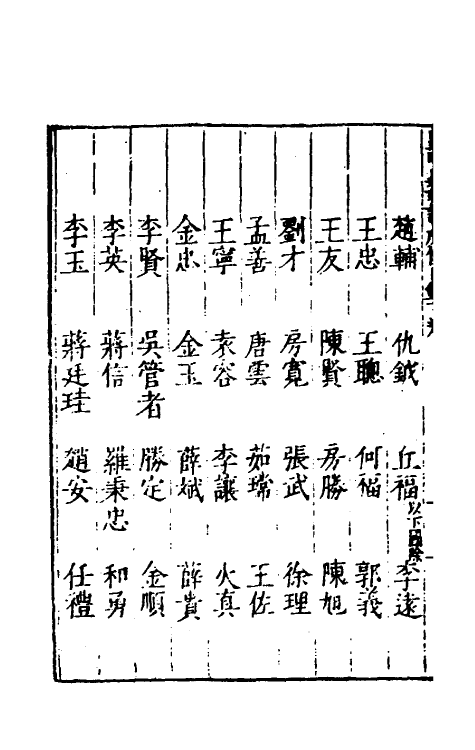 趙輔 仇鉞 丘福以下國除 李遠
王忠 王聰 何福 郭義
王友 陳賢 房勝 陳旭
劉才 房寬 張武 徐理
孟善 唐雲 茹瑺 王佐
王寧 袁容 李讓 火真
金忠 金玉 薛斌 薛貴
李賢 吳管者 滕定 金順
李英 蔣信 羅秉忠 和勇
李玉 蔣廷珪 趙安 任禮